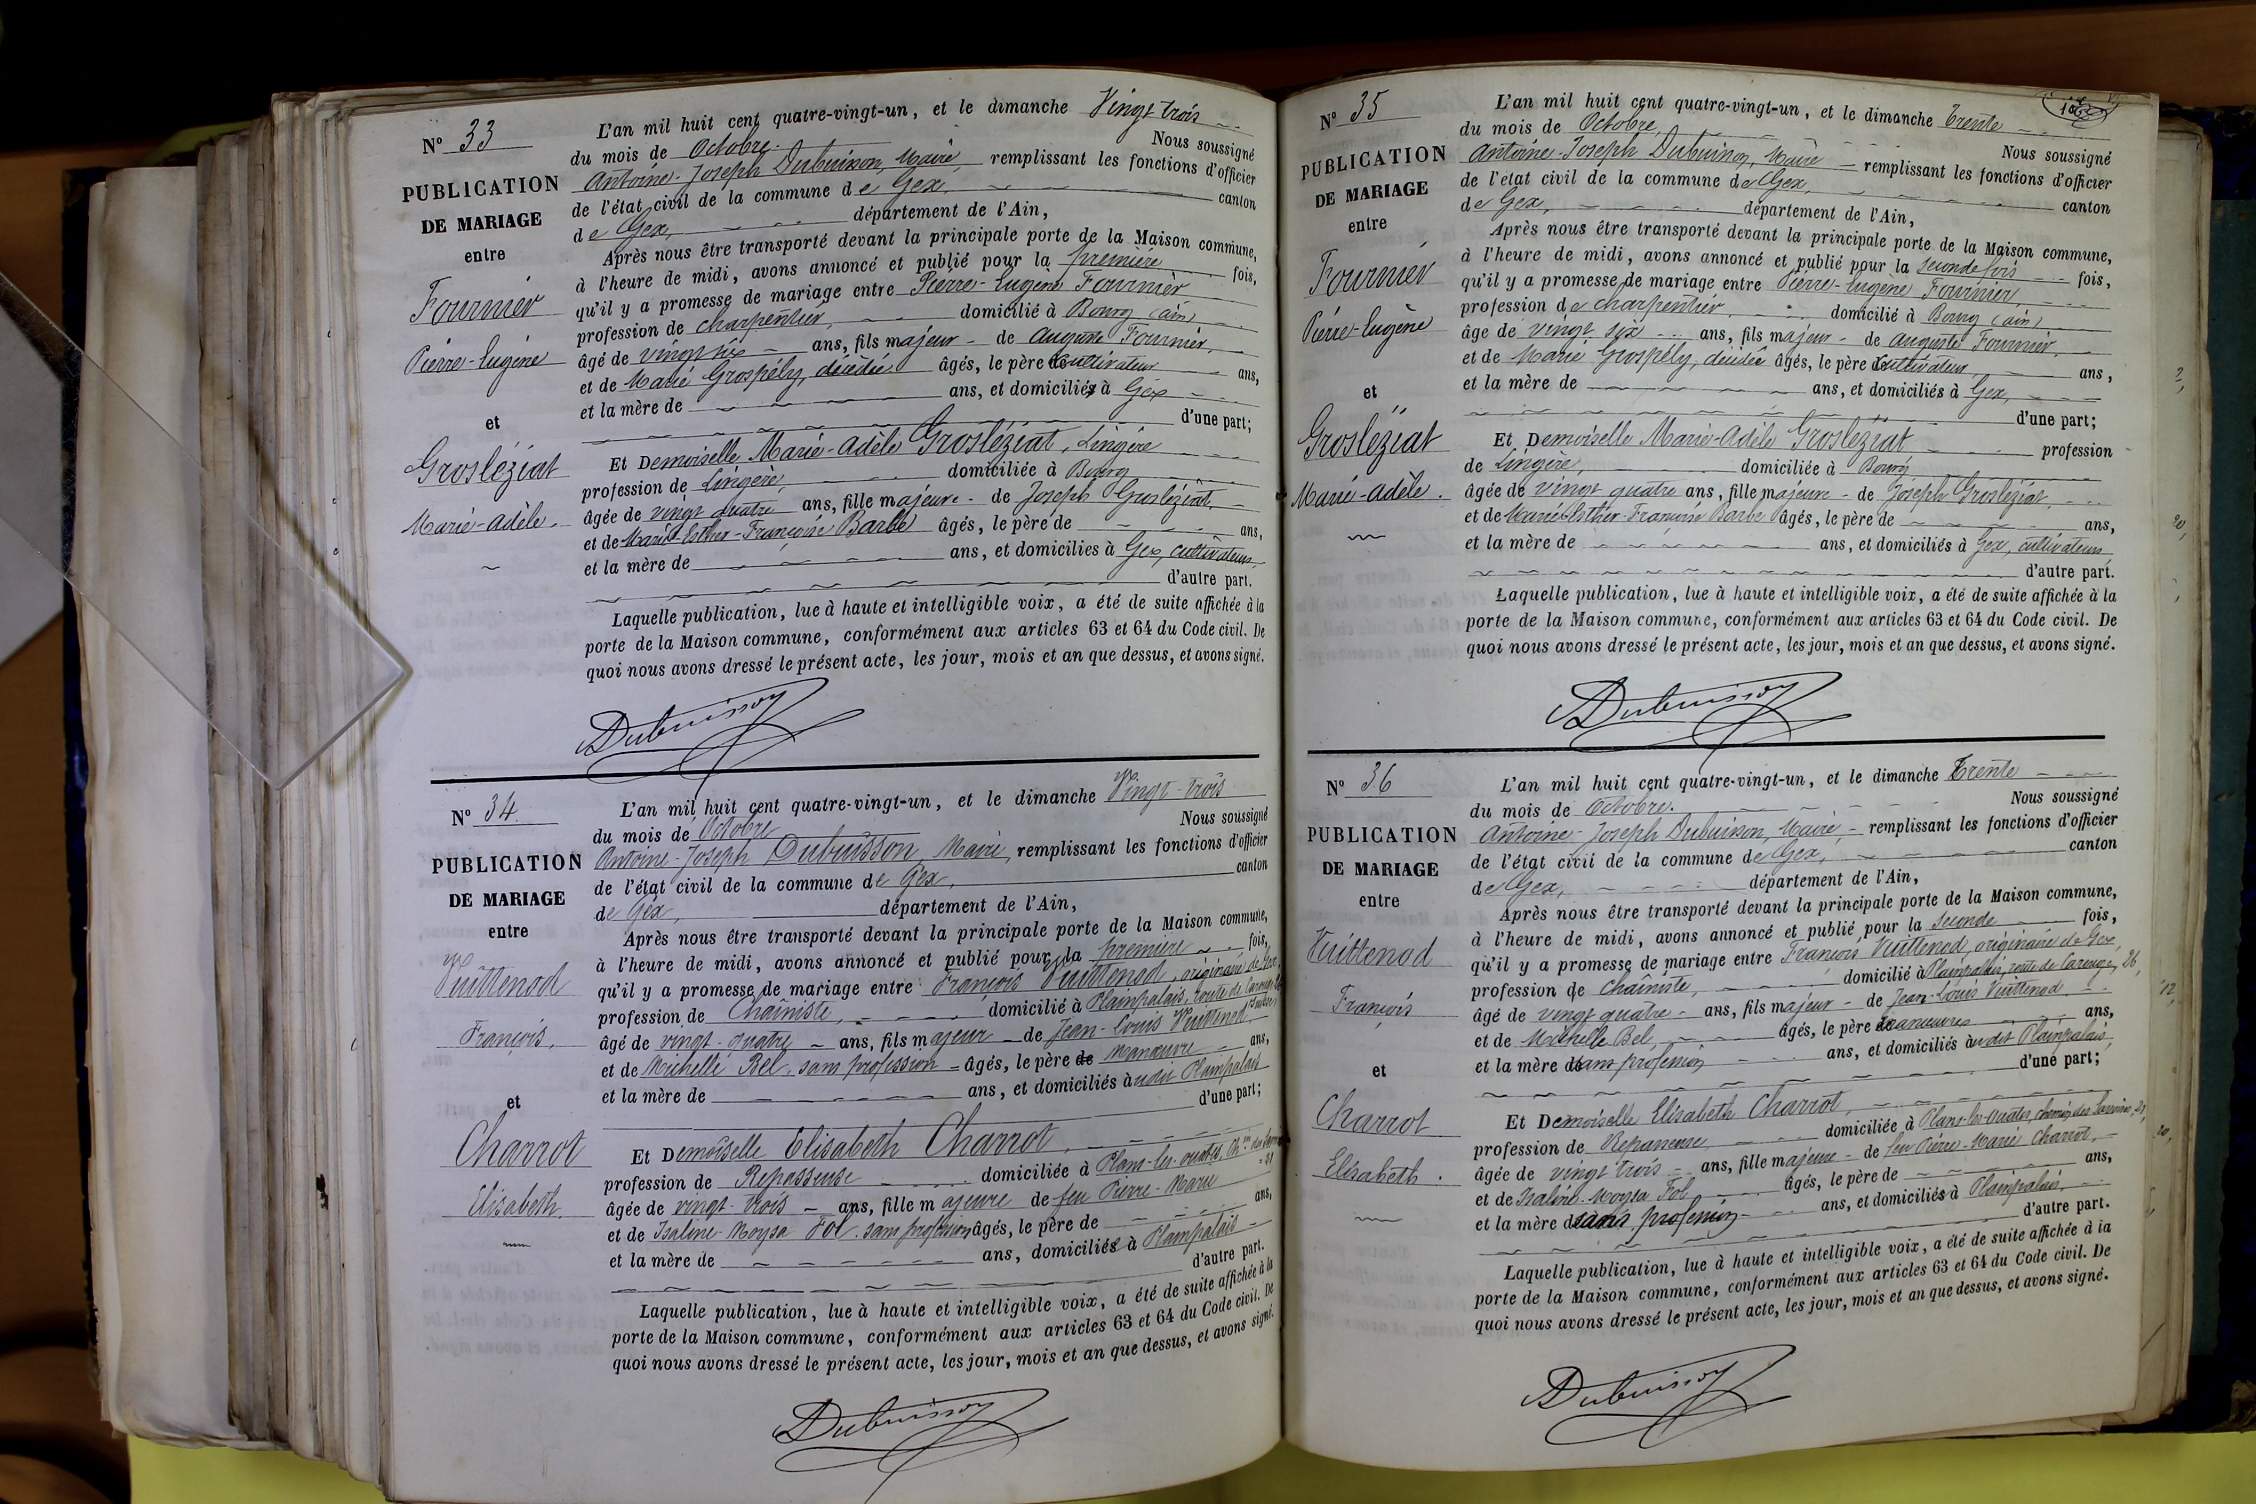 N° 33
PUBLICATION
DE MARIAGE
entre
Fournier
Pierre-Eugène
et
Grosléziat
Marie-Adèle.
L'an mil huit cent quatre-vingt-un, et le dimanche Vingt trois
du mois de Octobre. Nous soussigné
Antoine-Joseph Dubuisson, Maire remplissant les fonctions d'officier
de l'état civil de la commune de Gex, canton
de Gex, département de l'Ain,
Après nous être transporté devant la principale porte de la Maison commune,
à l'heure de midi, avons annoncé et publié pour la première fois,
qu'il y a promesse de mariage entre Pierre-Eugène Fournier
profession de charpentier, domicilié à Bourg (ain)
âgé de vingt six ans, fils majeur de Auguste Fournier,
et de Marie Grospély, décédée âgés, le père cultivateur ans,
et la mère de ans, et domiciliés à Gex
d'une part;
Et Demoiselle Marie-Adèle Grosléziat, Lingère
profession de Lingère, domiciliée à Bourg
âgée de vingt quatre ans, fille majeure de Joseph Grosléziat,
et de Marie-Esther-Françoise Barbe âgés, le père de ans,
et la mère de ans, et domiciliés à Gex, cultivateurs
d'autre part.
Laquelle publication, lue à haute et intelligible voix, a été de suite affichée à la
porte de la Maison commune, conformément aux articles 63 et 64 du Code civil. De
quoi nous avons dressé le présent acte, les jour, mois et an que dessus, et avons signé.
Dubuisson
N° 34
PUBLICATION
DE MARIAGE
entre
Vuittenod
François.
et
Charrot
Elisabeth.
L'an mil huit cent quatre-vingt-un, et le dimanche Vingt-trois
du mois de Octobre Nous soussigné
Antoine-Joseph Dubuisson, Maire, remplissant les fonctions d'officier
de l'état civil de la commune de Gex, canton
de Gex, département de l'Ain,
Après nous être transporté devant la principale porte de la Maison commune,
à l'heure de midi, avons annoncé et publié pour la première fois,
qu'il y a promesse de mariage entre François Vuittenod, originaire de Gex,
profession de Chaîniste, domicilié à Plainpalais, route de Carouge, 26 (Suisse)
âgé de vingt-quatre ans, fils majeur de Jean-Louis Vuittenod
et de Michelle Bel, sans profession âgés, le père de Manœuvre ans,
et la mère de ans, et domiciliés à udit Plainpalais
d'une part;
Et Demoiselle Elisabeth Charrot,
profession de Repasseuse domiciliée à Plans-les-ouates, Ch.in des
âgée de vingt-trois ans, fille majeure de feu Pierre-Marie
et de Isaline-Moysa Fol, sans profession âgés, le père de ans,
et la mère de ans, domiciliés à Plainpalais
d'autre part.
Laquelle publication, lue à haute et intelligible voix, a été de suite affichée à la
porte de la Maison commune, conformément aux articles 63 et 64 du Code civil. De
quoi nous avons dressé le présent acte, les jour, mois et an que dessus, et avons signé.
Dubuisson
N° 35
PUBLICATION
DE MARIAGE
entre
Fournier
Pierre-Eugène
et
Grosléziat
Marie-Adèle.
L'an mil huit cent quatre-vingt-un, et le dimanche Trente
du mois de Octobre, Nous soussigné
Antoine-Joseph Dubuisson, Maire remplissant les fonctions d'officier
de l'état civil de la commune de Gex, canton
de Gex, département de l'Ain,
Après nous être transporté devant la principale porte de la Maison commune,
à l'heure de midi, avons annoncé et publié pour la seconde fois fois,
qu'il y a promesse de mariage entre Pierre-Eugène Fournier,
profession de charpentier, domicilié à Bourg (ain)
âgé de vingt six ans, fils majeur de Auguste Fournier,
et de Marie Grospély, décédée âgés, le père cultivateur, ans,
et la mère de ans, et domiciliés à Gex,
d'une part;
Et Demoiselle Marie-Adèle Grosléziat profession
de Lingère, domiciliée à Bourg
âgée de vingt quatre ans, fille majeure de Joseph Grosléziat,
et de Marie-Esther-Françoise Barbe âgés, le père de ans,
et la mère de ans, et domiciliés à Gex, cultivateurs
d'autre part.
Laquelle publication, lue à haute et intelligible voix, a été de suite affichée à la
porte de la Maison commune, conformément aux articles 63 et 64 du Code civil. De
quoi nous avons dressé le présent acte, les jour, mois et an que dessus, et avons signé.
Dubuisson
N° 36
PUBLICATION
DE MARIAGE
entre
Vuittenod
François
et
Charrot
Elisabeth.
L'an mil huit cent quatre-vingt-un, et le dimanche Trente
du mois de Octobre. Nous soussigné
Antoine-Joseph Dubuisson, Maire, remplissant les fonctions d'officier
de l'état civil de la commune de Gex, canton
de Gex, département de l'Ain,
Après nous être transporté devant la principale porte de la Maison commune,
à l'heure de midi, avons annoncé et publié pour la seconde fois,
qu'il y a promesse de mariage entre François Vuittenod, originaire de Gex,
profession de chaîniste, domicilié à Plainpalais, route de Carouge, 26,
âgé de vingt quatre ans, fils majeur de Jean-Louis Vuittenod
et de Michelle Bel, âgés, le père manœuvre ans,
et la mère sans profession ans, et domiciliés à udit Plainpalais,
d'une part;
Et Demoiselle Elisabeth Charrot,
profession de Repasseuse domiciliée à Plans-les-Ouates, chemin des
âgée de vingt trois ans, fille majeure de feu Pierre-Marie Charrot,
et de Isaline-Moysa Fol âgés, le père de ans,
et la mère sans profession ans, et domiciliés à Plainpalais,
d'autre part.
Laquelle publication, lue à haute et intelligible voix, a été de suite affichée à la
porte de la Maison commune, conformément aux articles 63 et 64 du Code civil. De
quoi nous avons dressé le présent acte, les jour, mois et an que dessus, et avons signé.
Dubuisson